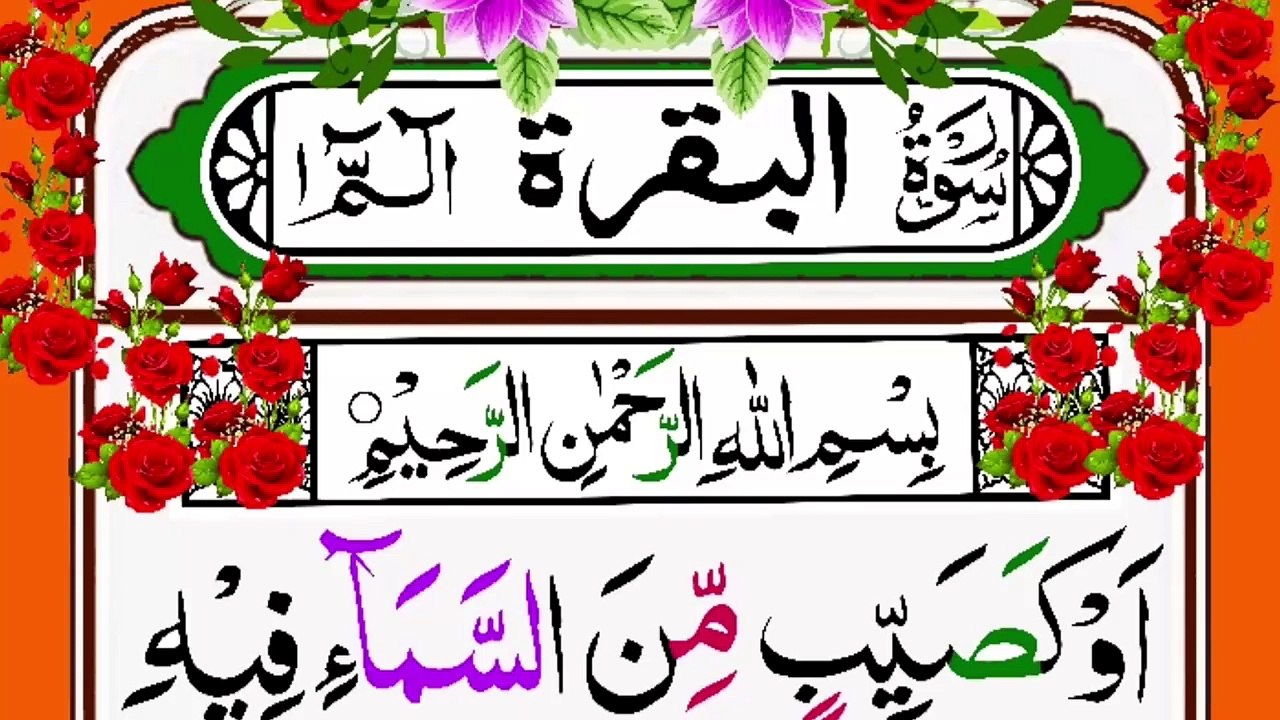 سُوْرَةُ البقرة الٓـمّٓ ١
بِسْمِ اللّٰهِ الرَّحْمٰنِ الرَّحِيْمِ ○
اَوْ كَصَيِّبٍ مِّنَ السَّمَآءِ فِيْهِ